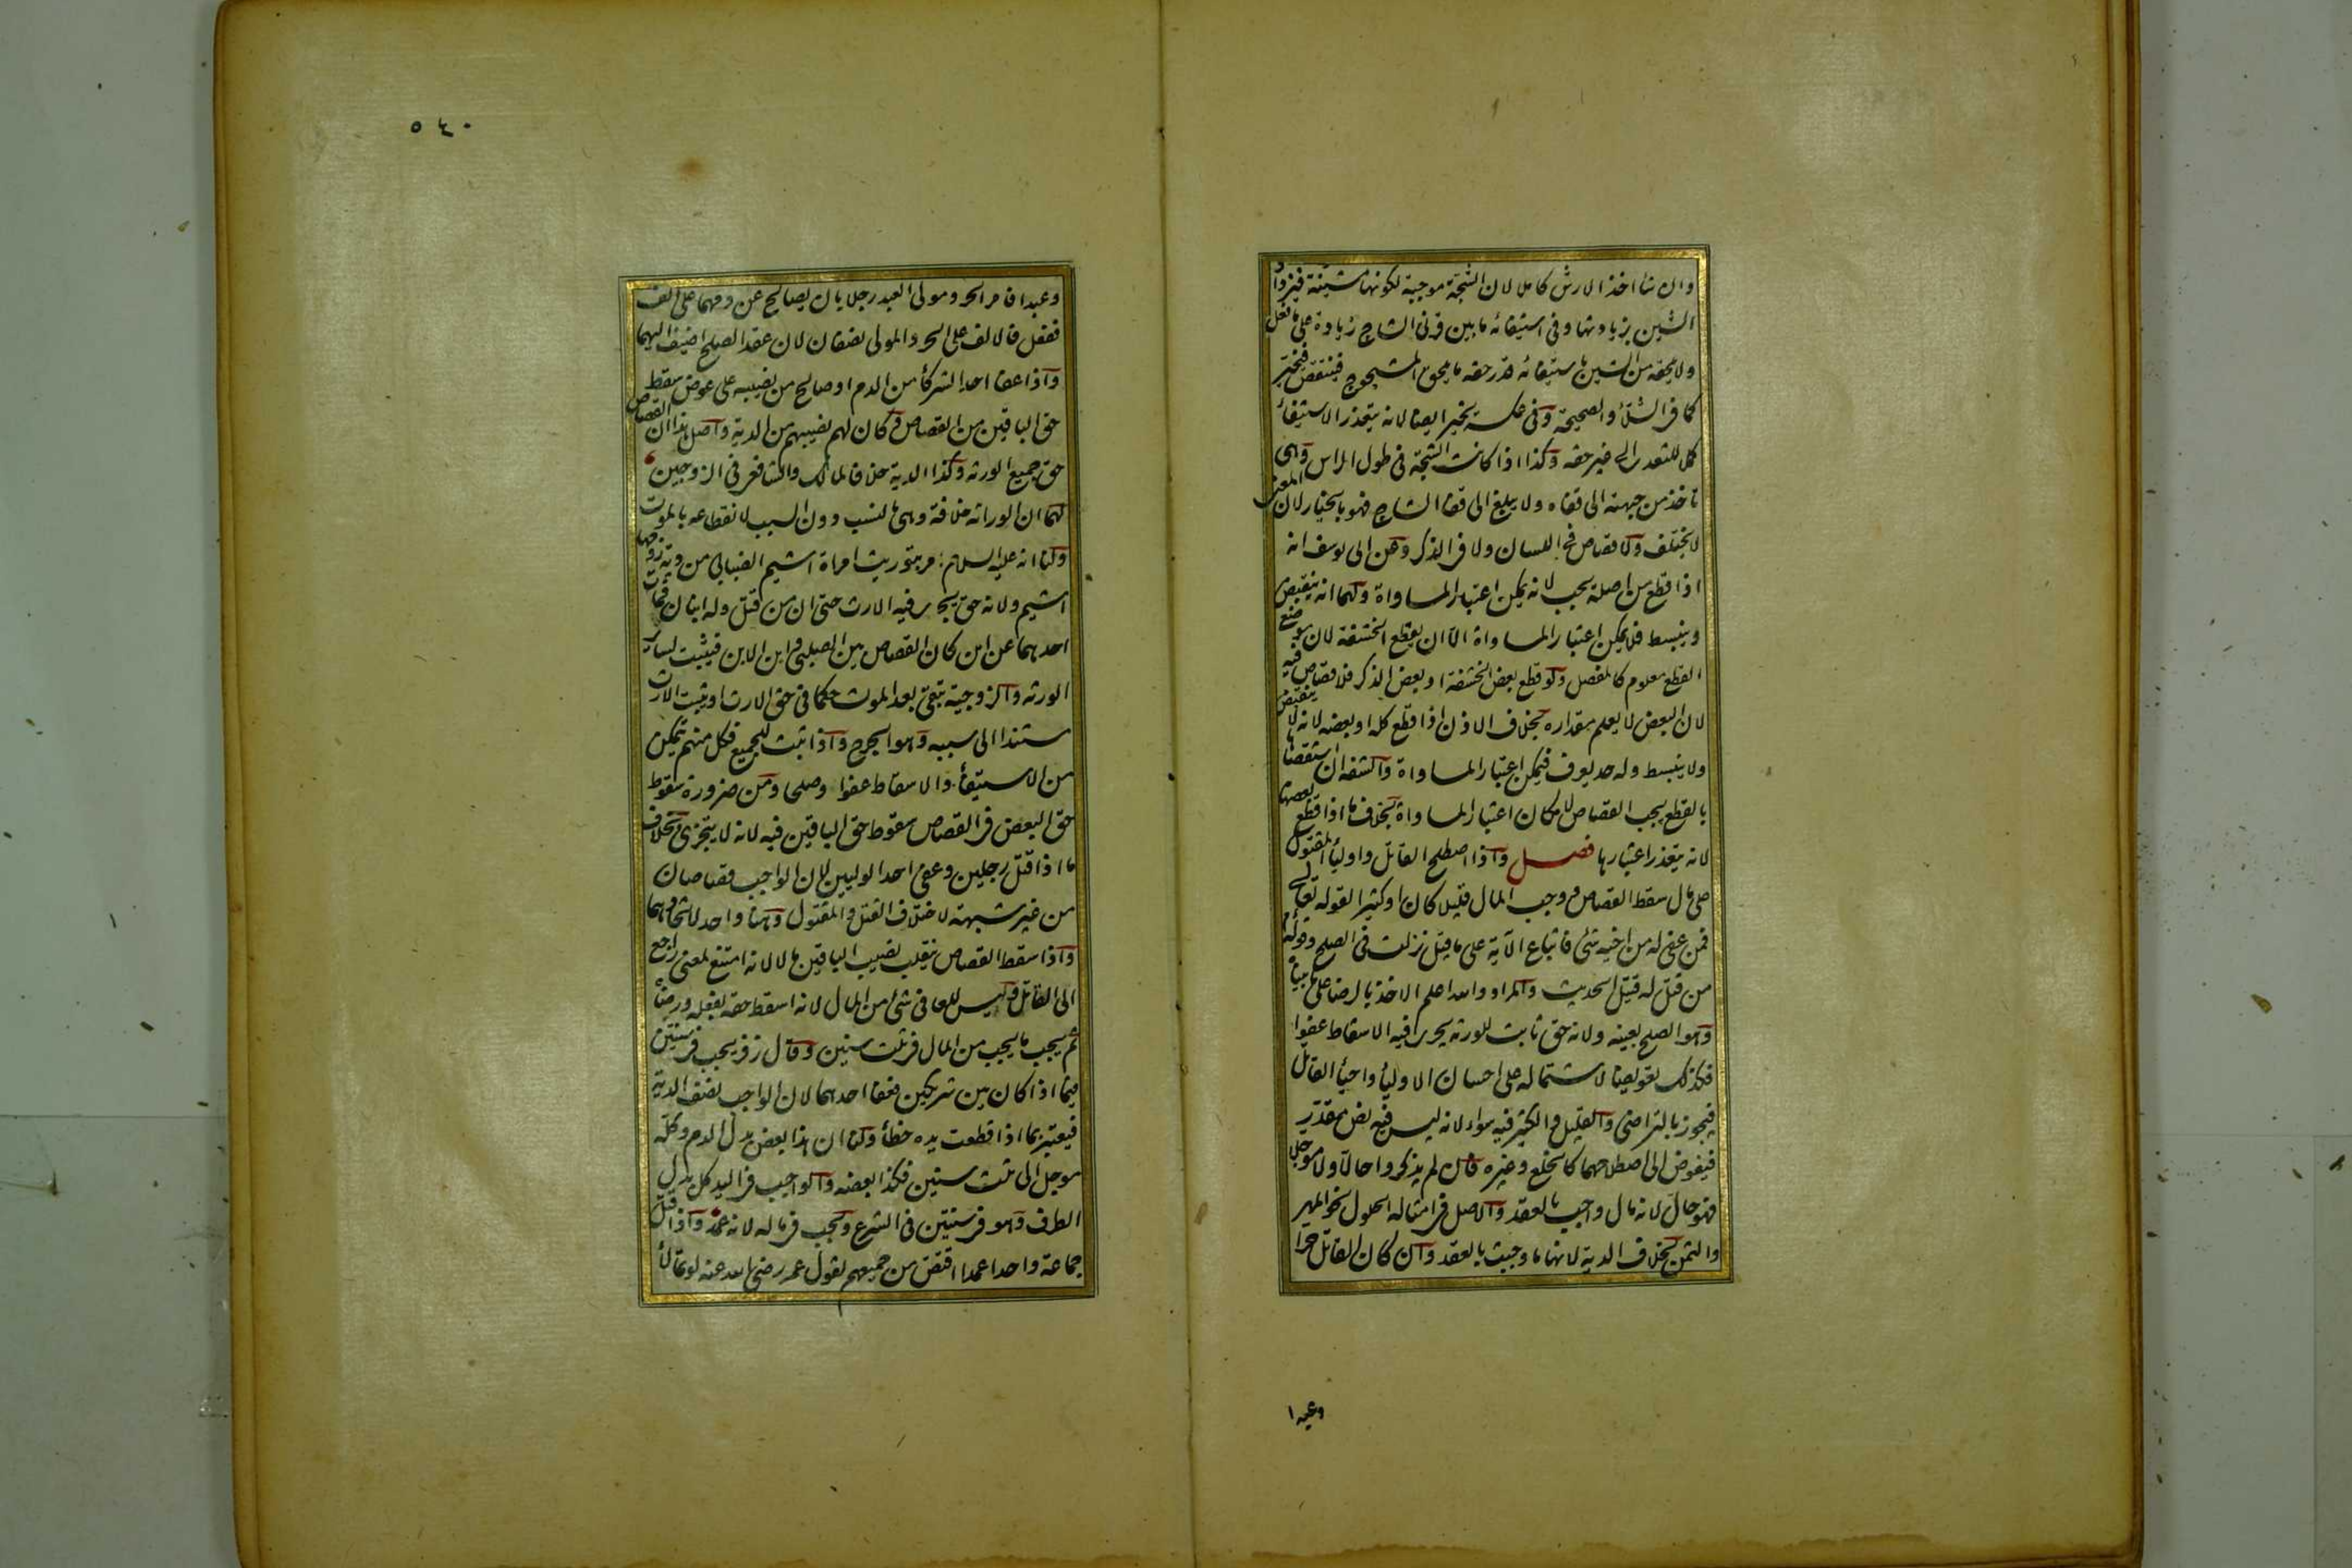 وان شا اخذ الارش كاملا لان الشجة موجبة لكونها مشينة فيزداد
الشين بزيادتها وفى استيفائه ما بين قرنى الشاج زيادة على ما فعل
ولا يلحقه من الشين باستيفائه قدر حقه ما يلحق المشجوج فينتقص فيخير
كما فى الشلاء والصحيحة وفى عكسه يخير ايضا لانه يتعذر الاستيفاء
كملا للتعدى الى غير حقه وكذا اذا كانت الشجة فى طول الراس وهى
تاخذ من جبهته الى قفاه ولا يبلغ الى قفا الشاج فهو بالخيار لان المعنى
لا يختلف ولا قصاص فى اللسان ولا فى الذكر وعن ابى يوسف انه
اذا قطع من اصله يجب لانه يمكن اعتبار المساواة ولهما انه ينقبض
وينبسط فلا يمكن اعتبار المساواة الا ان يقطع الحشفة لان موضع
القطع معلوم كالمفصل ولو قطع بعض الحشفة او بعض الذكر فلا قصاص فيه
لان البعض لا يعلم مقداره بخلاف الاذن اذا قطع كله او بعضه لانه لا ينقبض
ولا ينبسط وله حد يعرف فيمكن اعتبار المساواة والشفه ان استقصاها
بالقطع يجب القصاص لامكان اعتبار المساواة بخلاف ما اذا قطع بعضها
لانه يتعذر اعتبارها فصل واذا اصطلح القاتل واولياء المقتول
على مال سقط القصاص ووجب المال قليلا كان او كثيرا لقوله تعالى
فمن عفى له من اخيه شئ فاتباع الآية على ما قيل نزلت فى الصلح وقوله
من قتل له قتيل الحديث والمراد والله اعلم الاخذ بالرضا على ما بيناه
وهو الصلح بعينه ولانه حق ثابت للورثه يجرى فيه الاسقاط عفوا
فكذلك تعويضا لاشتماله على احسان الاولياء واحياء القاتل
فيجوز بالتراضى والقليل والكثير فيه سواء لانه ليس فيه نص مقدر
فيفوض الى اصطلاحهما كالخلع وغيره فان لم يذكروا حالا ولا مؤجلا
فهو حال لانه مال واجب بالعقد والاصل فى امثاله الحلول نحو المهر
والثمن بخلاف الدية لانها ما وجبت بالعقد وان كان القاتل حرا
وعبدا
٥٤٠
وعبدا فامر الحر ومولى العبد رجلا بان يصالح عن دمهما على الف
ففعل فالالف على الحر والمولى نصفان لان عقد الصلح اضيف اليهما
واذا عفا احد الشركاء من الدم او صالح من نصيبه على عوض سقط
حق الباقين من القصاص وكان لهم نصيبهم من الدية واصل هذا ان القصاص
حق جميع الورثه وكذا الدية خلافا لمالك والشافعى فى الزوجين
لهما ان الوراثه خلافة وهى بالنسب دون السبب لانقطاعه بالموت
ولنا انه عليه السلام امر بتوريث امراة اشيم الضبابى من دية زوجها
اشيم ولانه حق يجرى فيه الارث حتى ان من قتل وله ابنان فمات
احدهما عن ابن كان القصاص بين الصلبى وابن الابن فيثبت لسائر
الورثه والزوجية تبقى بعد الموت حكما فى حق الارث او يثبت الارث
مستندا الى سببه وهو الجرح واذا ثبت للجميع فكل منهم يتمكن
من الاستيفاء والاسقاط عفوا وصلحا ومن ضرورة سقوط
حق البعض فى القصاص سقوط حق الباقين فيه لانه لا يتجزى بخلاف
ما اذا قتل رجلين وعفى احد الوليين لان الواجب قصاصان
من غير شبهة لاختلاف القتل والمقتول وهنا واحد لاتحادهما
واذا سقط القصاص ينقلب نصيب الباقين مالا لانه امتنع لمعنى راجع
الى القاتل وليس للعافى شئ من المال لانه اسقط حقه بفعله ورضاه
ثم يجب ما يجب من المال فى ثلث سنين وقال زفر يجب فى سنتين
فيما اذا كان بين شريكين فعفا احدهما لان الواجب نصف الدية
فيعتبر بما اذا قطعت يده خطأ ولنا ان هذا بعض بدل الدم وكله
موجل الى ثلث سنين فكذا بعضه والواجب فى اليد كل بدل
الطرف وهو فى سنتين فى الشرع ويجب فى ماله لانه عمد واذا قتل
جماعة واحدا عمدا اقتص من جميعهم لقول عمر رضى الله عنه لو تمالأ